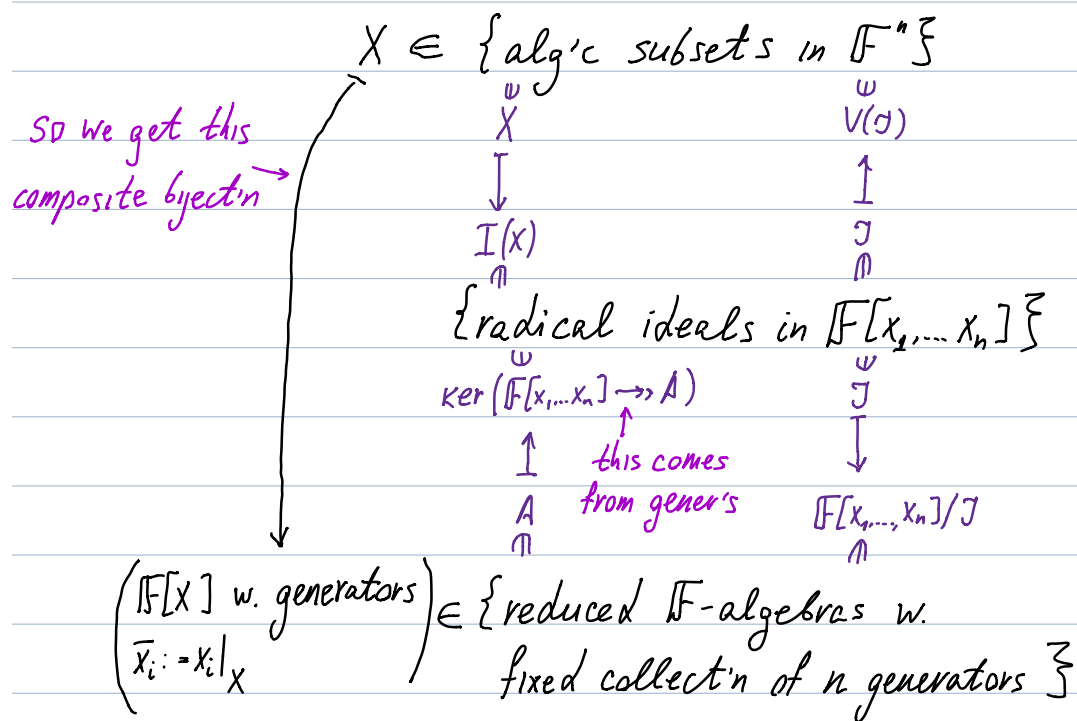 X ∈ {alg'c subsets in 𝔽ⁿ}
∪ ∪
X V(J)
So we get this
composite biject'n
↓ ↑
I(X) J
∩ ∩
{radical ideals in 𝔽[x₁,... xₙ]}
∪ ∪
ker(𝔽[x₁,...xₙ] ↠ A) J
↑ ↑ ↓
this comes
from gener's
A 𝔽[x₁,...,xₙ]/J
∩ ∩
(𝔽[X] w. generators
x̄ᵢ := xᵢ|_X) ∈ {reduced 𝔽-algebras w.
fixed collect'n of n generators}